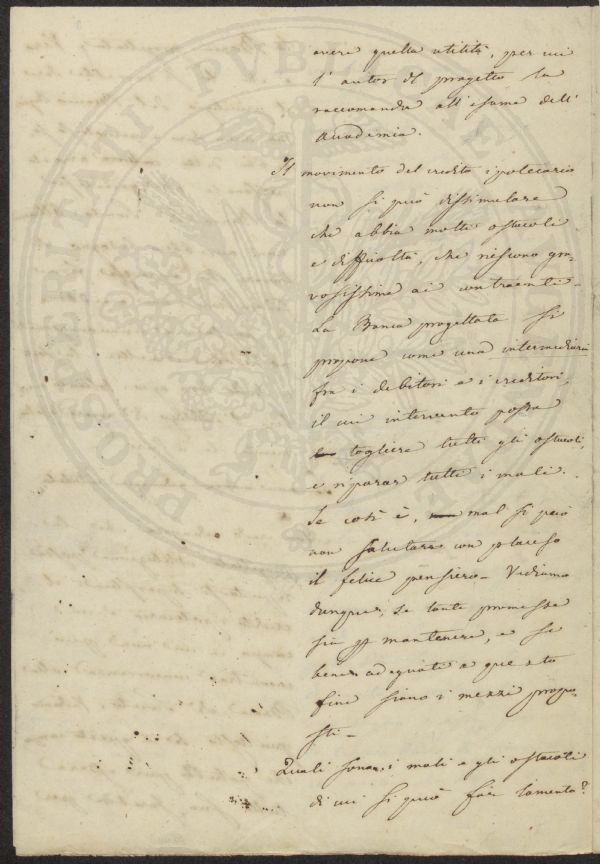 avere quella utilità, per cui
l'autor del progetto la
raccomanda all'esame dell'
Accademia.
Il movimento del credito ipotecario
non si può dissimulare
che abbia molti ostacoli
e difficoltà, che riescono gra-
vosissime ai contraenti -
La Banca progettata si
propone come una intermediaria
fra i debitori e i creditori,
il cui intervento possa
togliere tutti gli ostacoli,
e riparar tutti i mali.
Se così è, mal si può
non salutare con plauso
il felice pensiero - Vediamo
dunque, se tante promesse
sia p mantenere, e se
bene adeguati a questo
fine siano i mezzi propo-
sti -
Quali sono i mali e gli ostacoli
di cui si può far lamento?
PROSPERITATI PVBLICAE